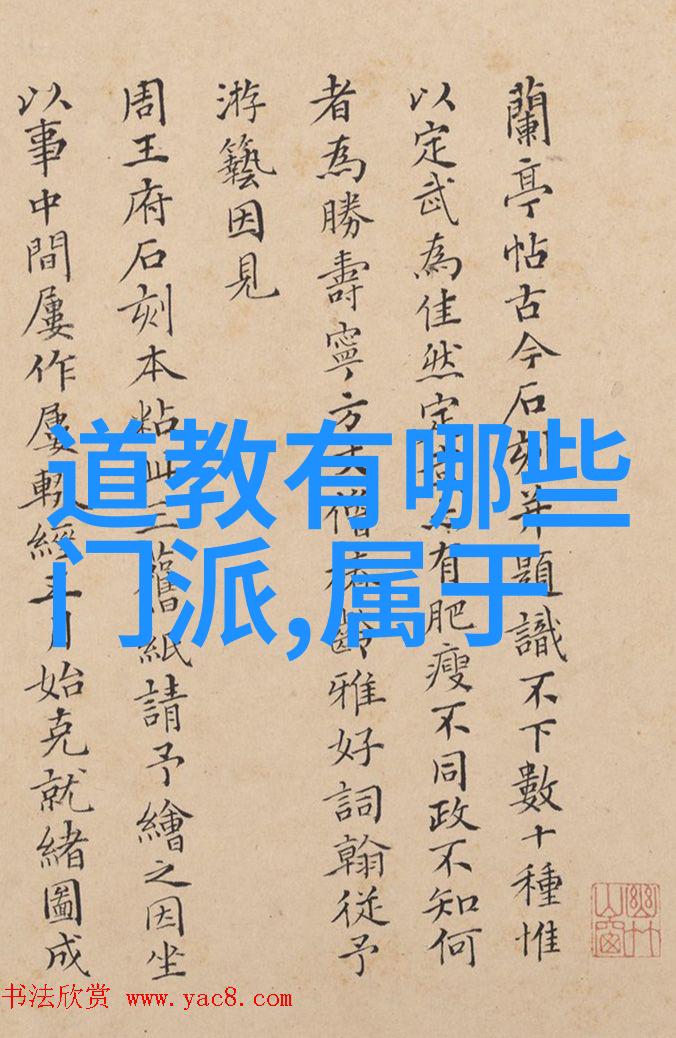 蘭亭帖古今石刻并題識不下數十種惟
以定武為佳然定武有肥瘦不同政不知何
者為勝壽寧方丈僧
雅好詞翰從予
游藝因見
周王府石刻本粘
舊紙請予繪之因坐
以事中間屢作屢輟經三月始克就緒圖成
道教有哪些
门派,属于
书法欣赏 www.yac8.com